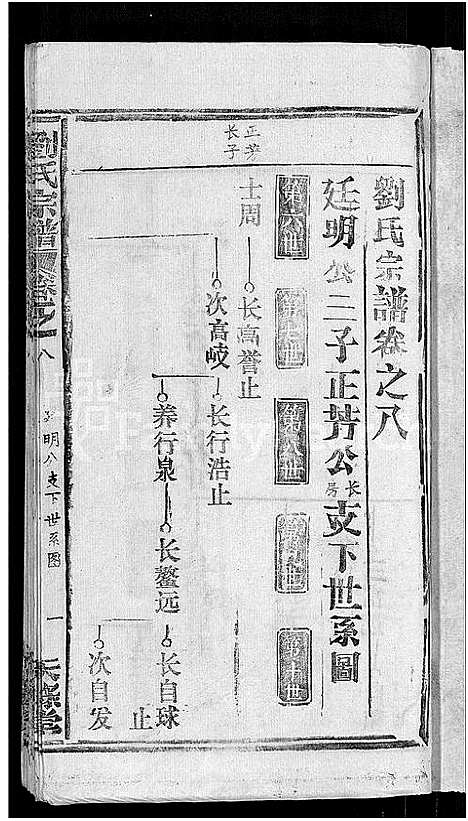 劉氏宗譜卷之八
廷明公二子正芳公長房支下世系圖
第六世
第七世
第八世
第九世
第十世
正芳长子
士周
长高誉止
次高岐
长行浩止
养行泉
长鳌远
长自球止
次自发
劉氏宗譜卷之八
明公支下世系图
一